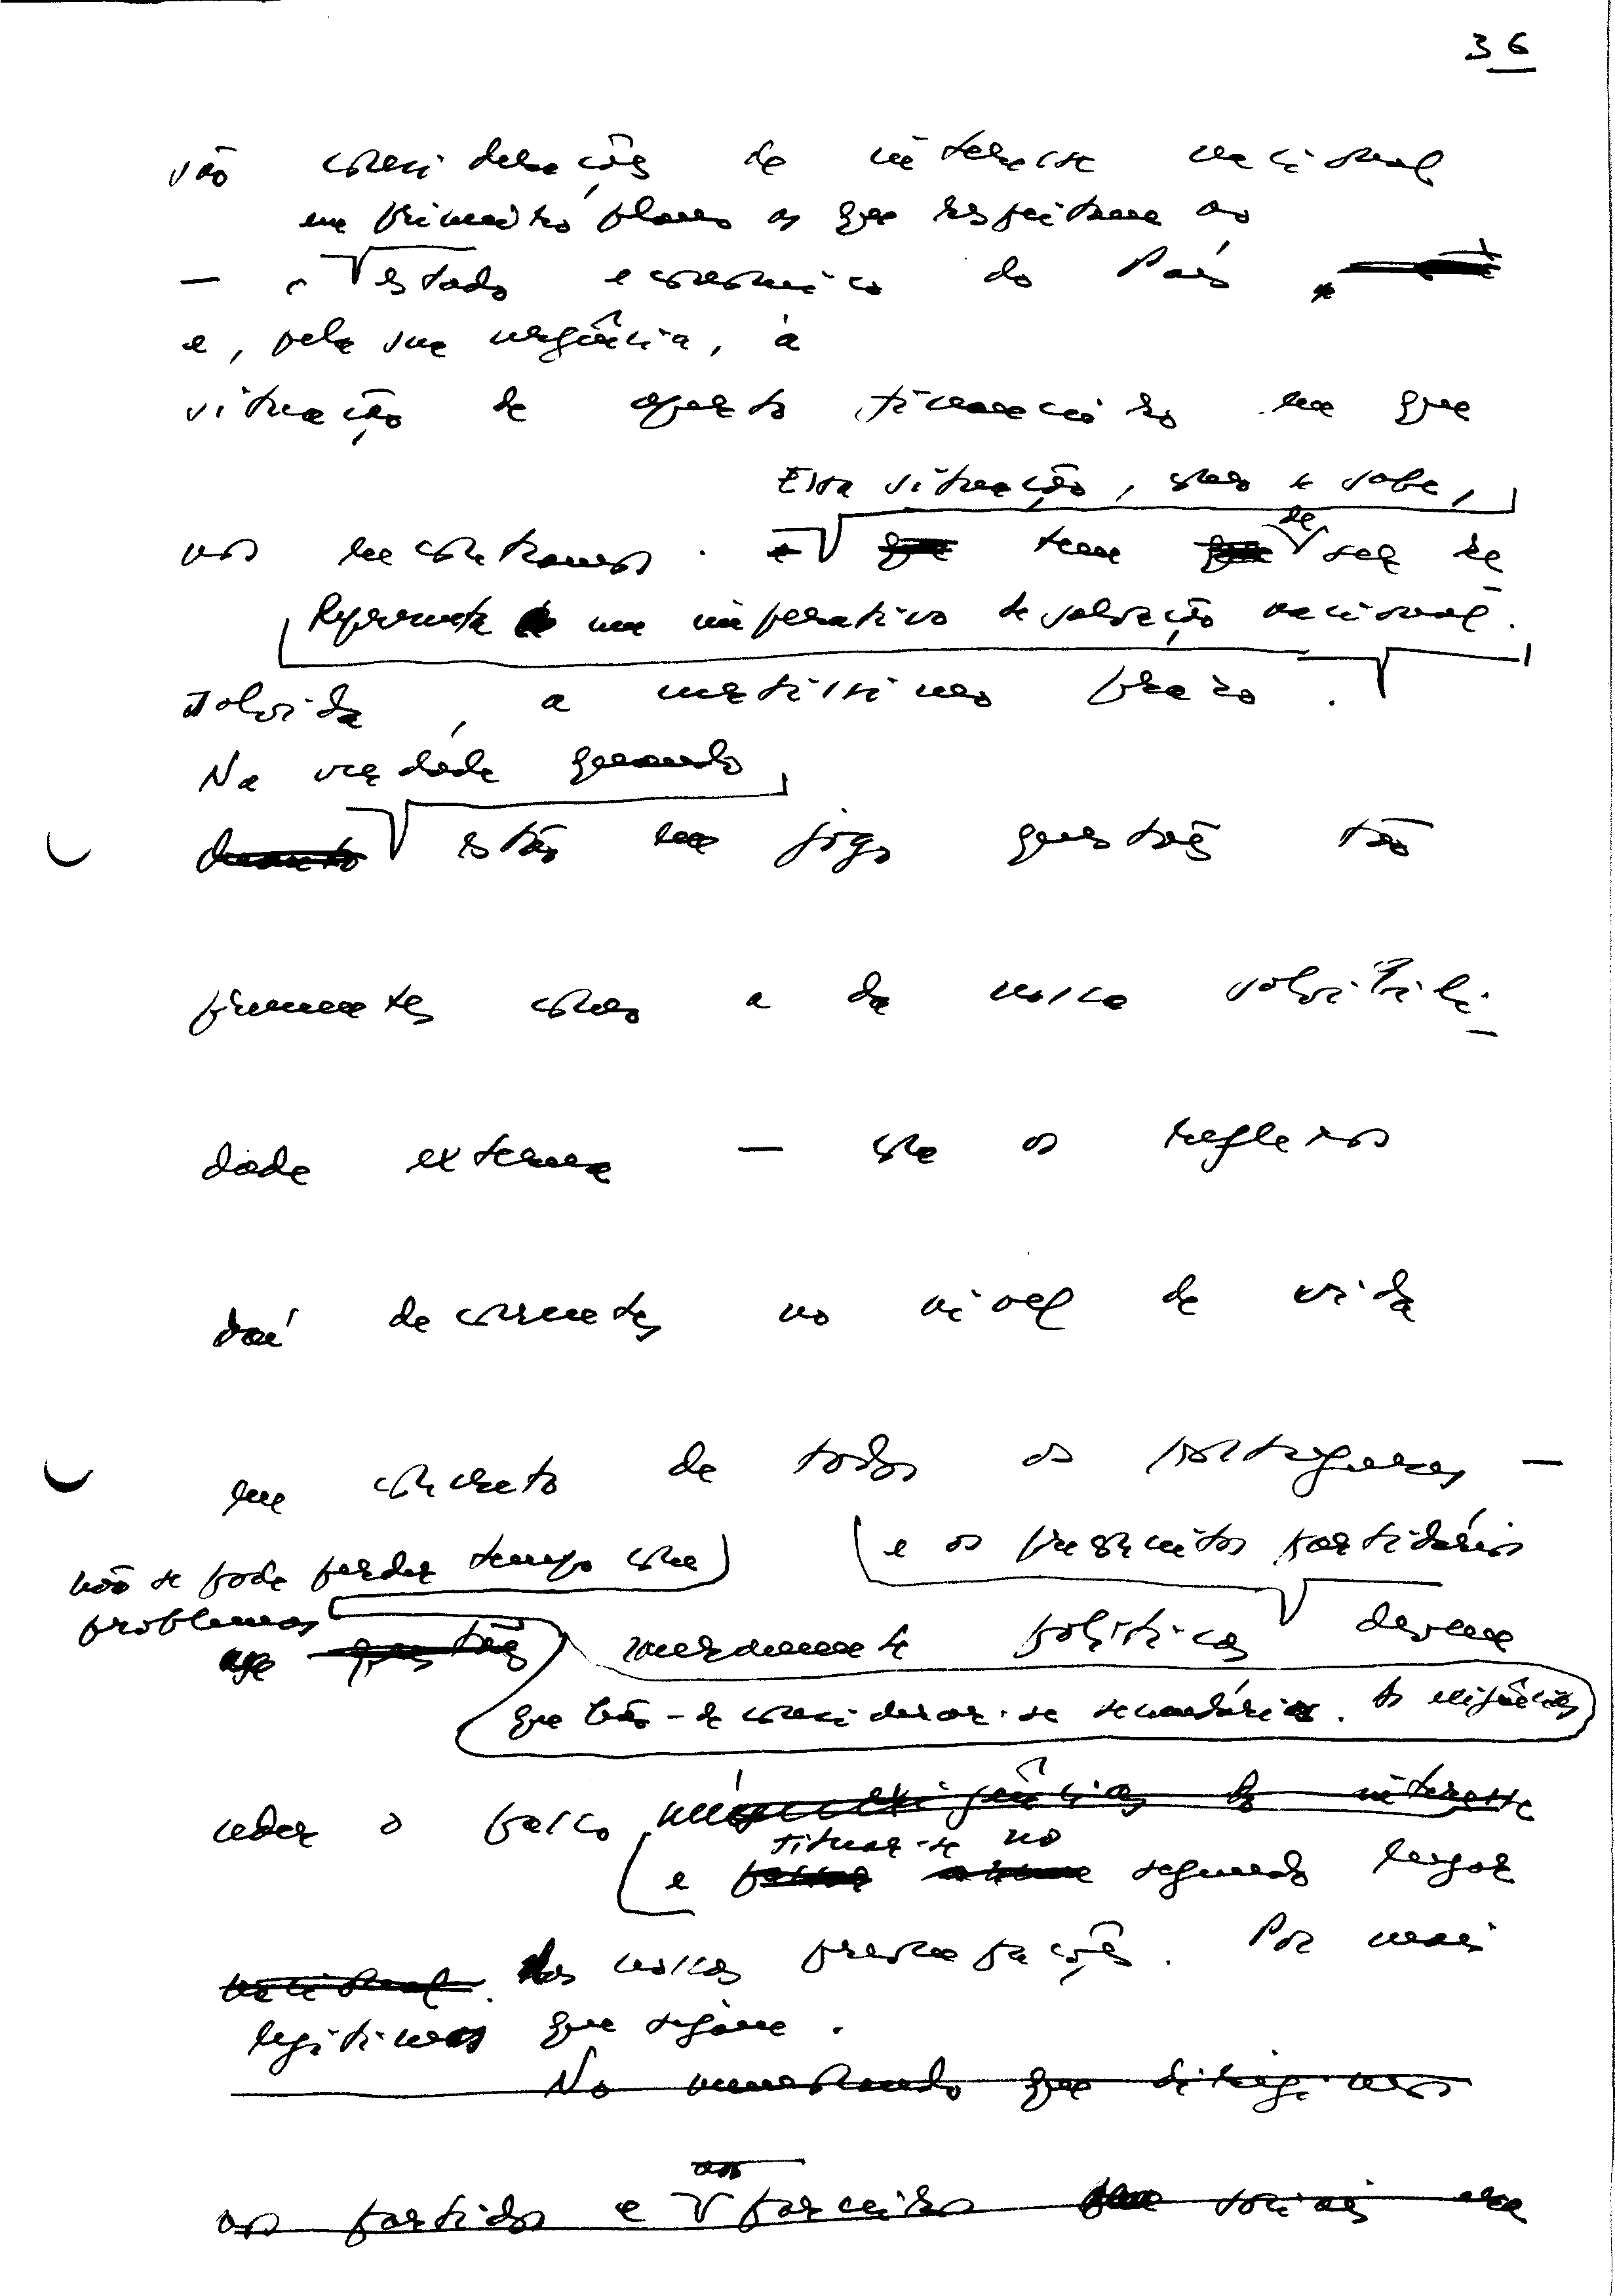 36
são considerações de interesse nacional
em primeiro plano as que respeitam ao
— o estado económico do País
e, pela sua urgência, à
situação de aperto financeiro em que
Essa situação, como se sabe,
nos encontramos. e que tem que de ser re
Representa um imperativo de salvação nacional.
solvida, a curtíssimo prazo.
Na verdade quando
Quando estão em jogo questões tão
prementes como a da nossa solvabili-
dade externa — com os reflexos
daí decorrentes no nível de vida
em concreto de todos os portugueses —
não se pode perder tempo com
e os preconceitos partidários
problemas
questões meramente políticas devem
que hão-de considerar-se secundários. As exigências
ceder o passo às exigências do interesse
situar-se no
e passar segundo lugar
nacional. das nossas preocupações. Por mais
legítimas que sejam.
No memorando que dirigimos
aos
aos partidos e parceiros sociais em